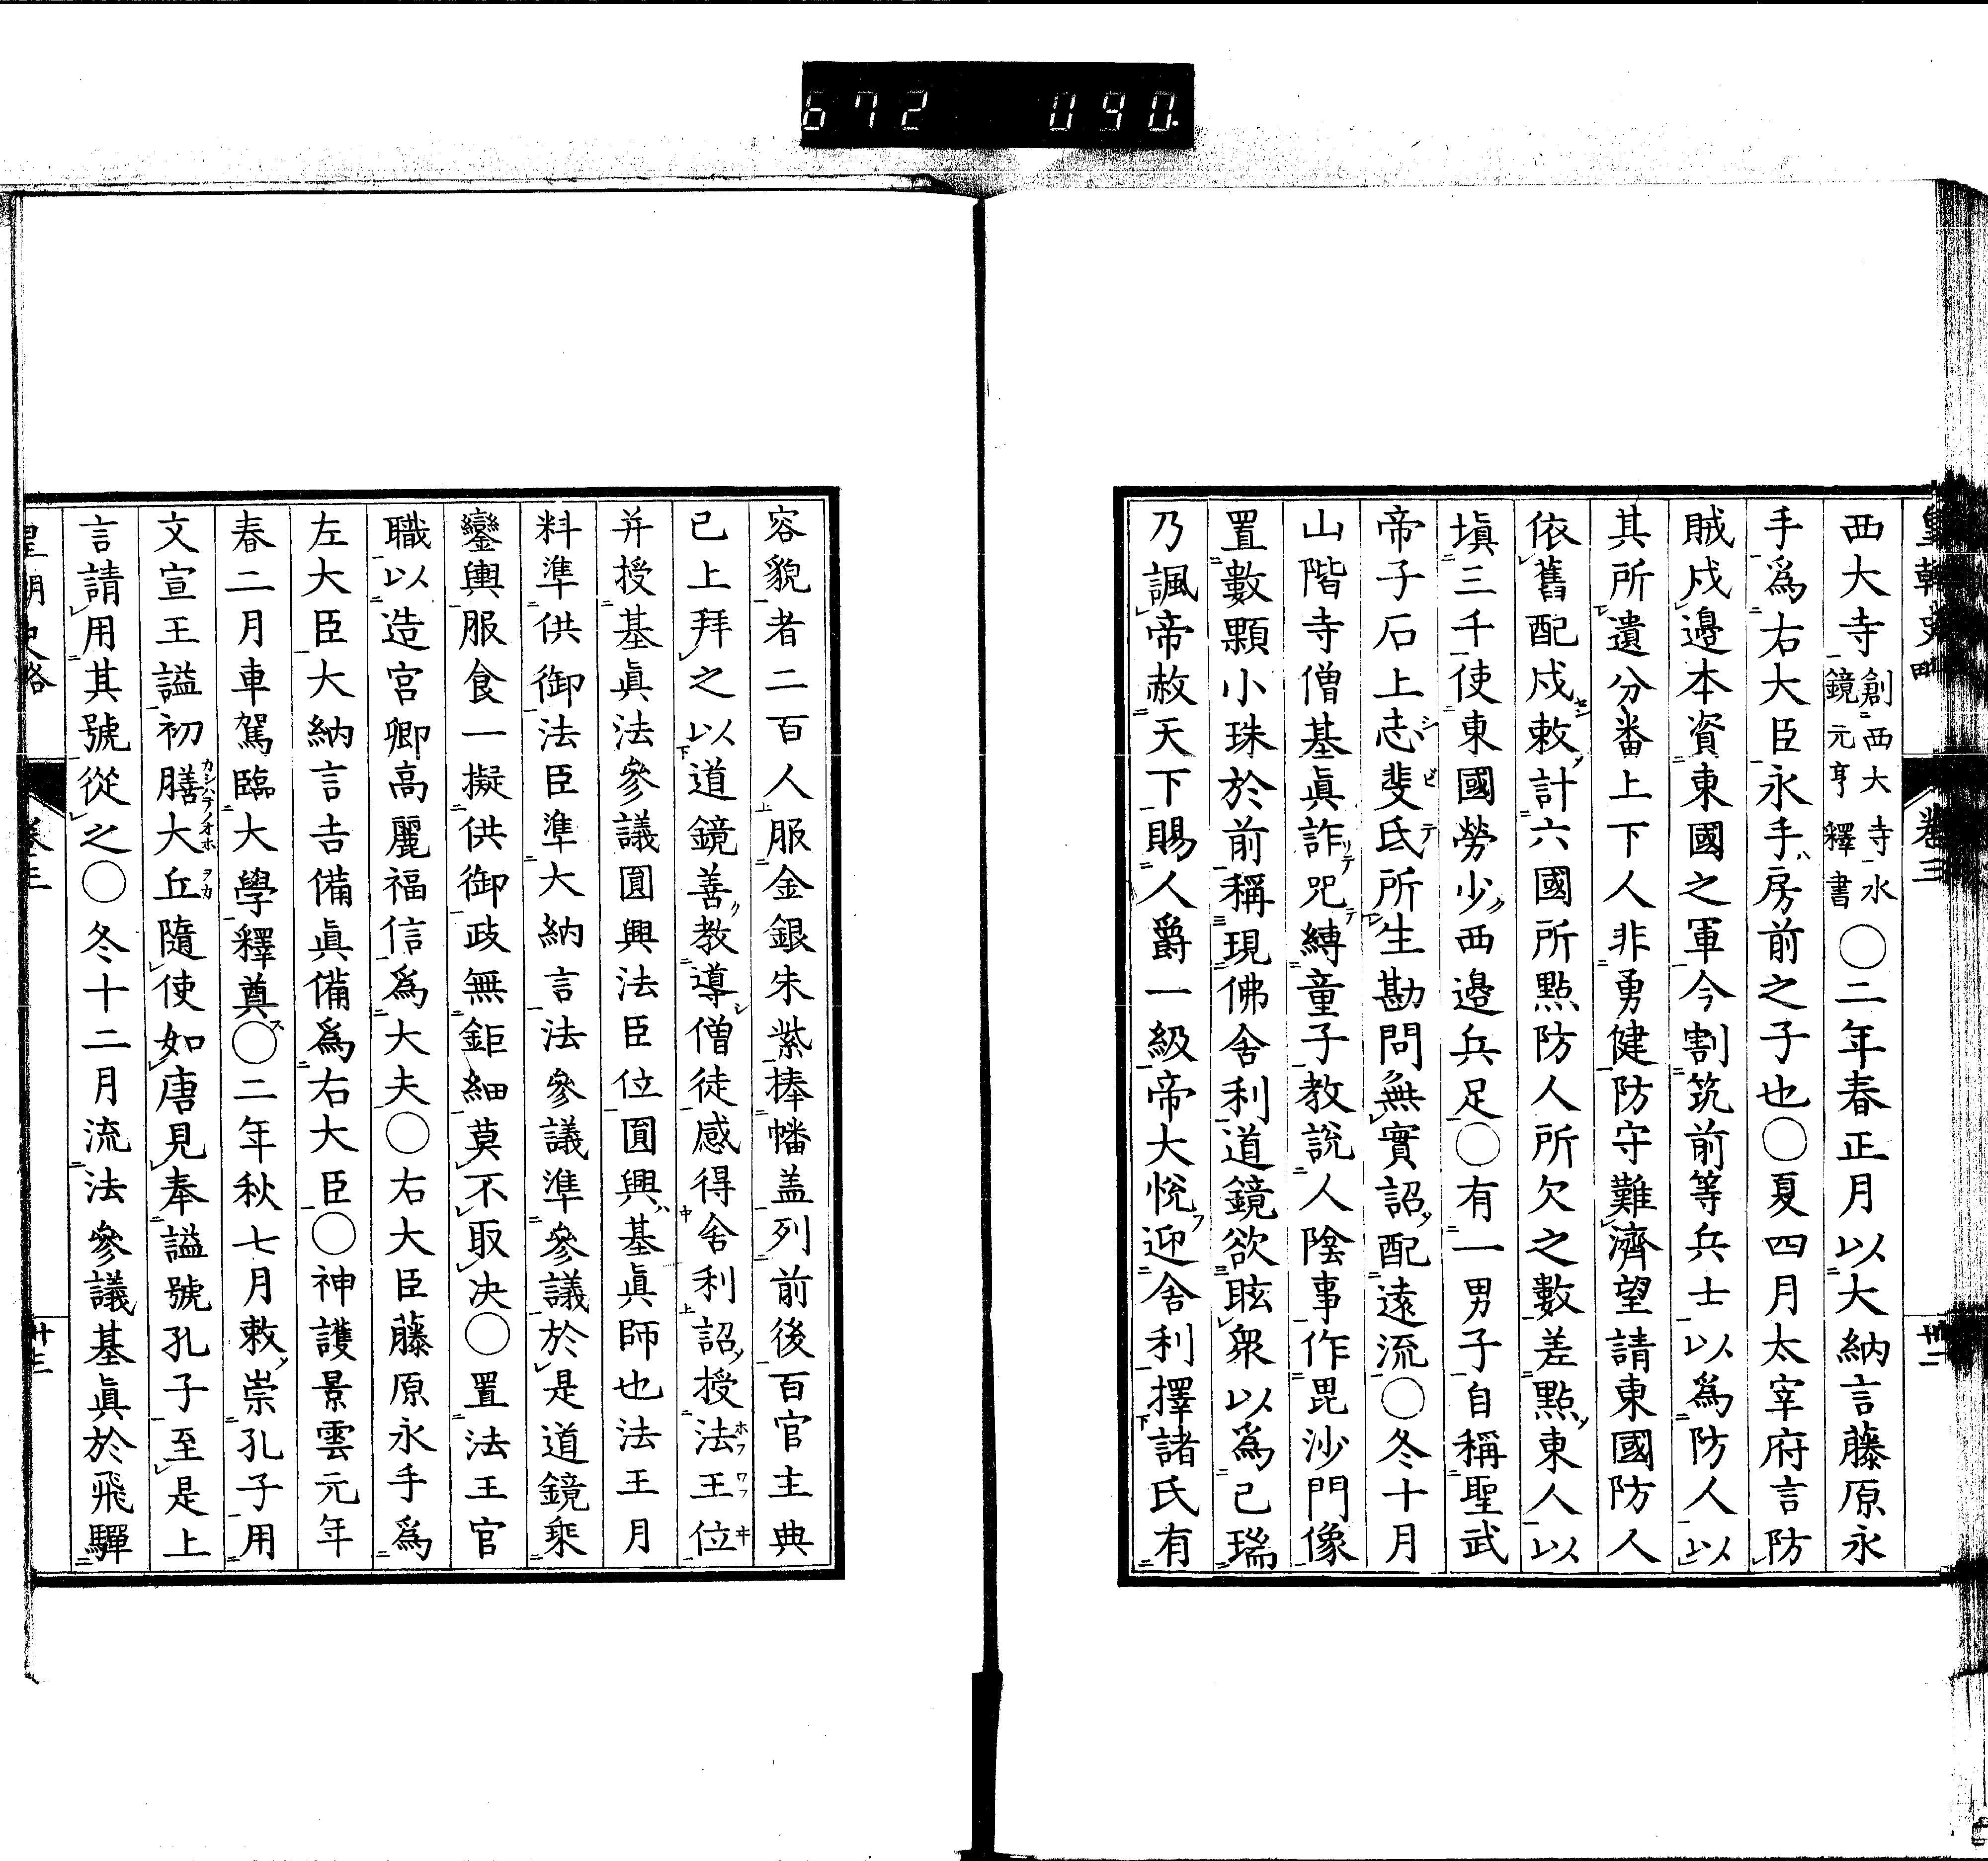 672 090.
西大寺創西大寺水鏡元亨釋書○二年春正月以大納言藤原永
手爲右大臣永手房前之子也○夏四月太宰府言防
賊戍邊本資東國之軍今割筑前等兵士以爲防人以
其所遺分番上下人非勇健防守難濟望請東國防人
依舊配戍敕計六國所點防人所欠之數差點東人以
塡三千使東國勞少西邊兵足○有一男子自稱聖武
帝子石上志斐氏所生勘問無實詔配遠流○冬十月
山階寺僧基眞詐咒縛童子教說人陰事作毘沙門像
置數顆小珠於前稱現佛舍利道鏡欲眩衆以爲己瑞
乃諷帝赦天下賜人爵一級帝大悅迎舍利擇諸氏有
容貌者二百人服金銀朱紫捧幡盖列前後百官主典
已上拜之以道鏡善教導僧徒感得舍利詔授法王位
并授基眞法參議圓興法臣位圓興基眞師也法王月
料準供御法臣準大納言法參議準參議於是道鏡乘
鑾輿服食一擬供御政無鉅細莫不取决○置法王宮
職以造宮卿高麗福信爲大夫○右大臣藤原永手爲
左大臣大納言吉備眞備爲右大臣○神護景雲元年
春二月車駕臨大學釋奠○二年秋七月敕崇孔子用
文宣王謚初膳大丘隨使如唐見奉謚號孔子至是上
言請用其號從之○冬十二月流法參議基眞於飛驒
皇朝史略 卷三 卅三